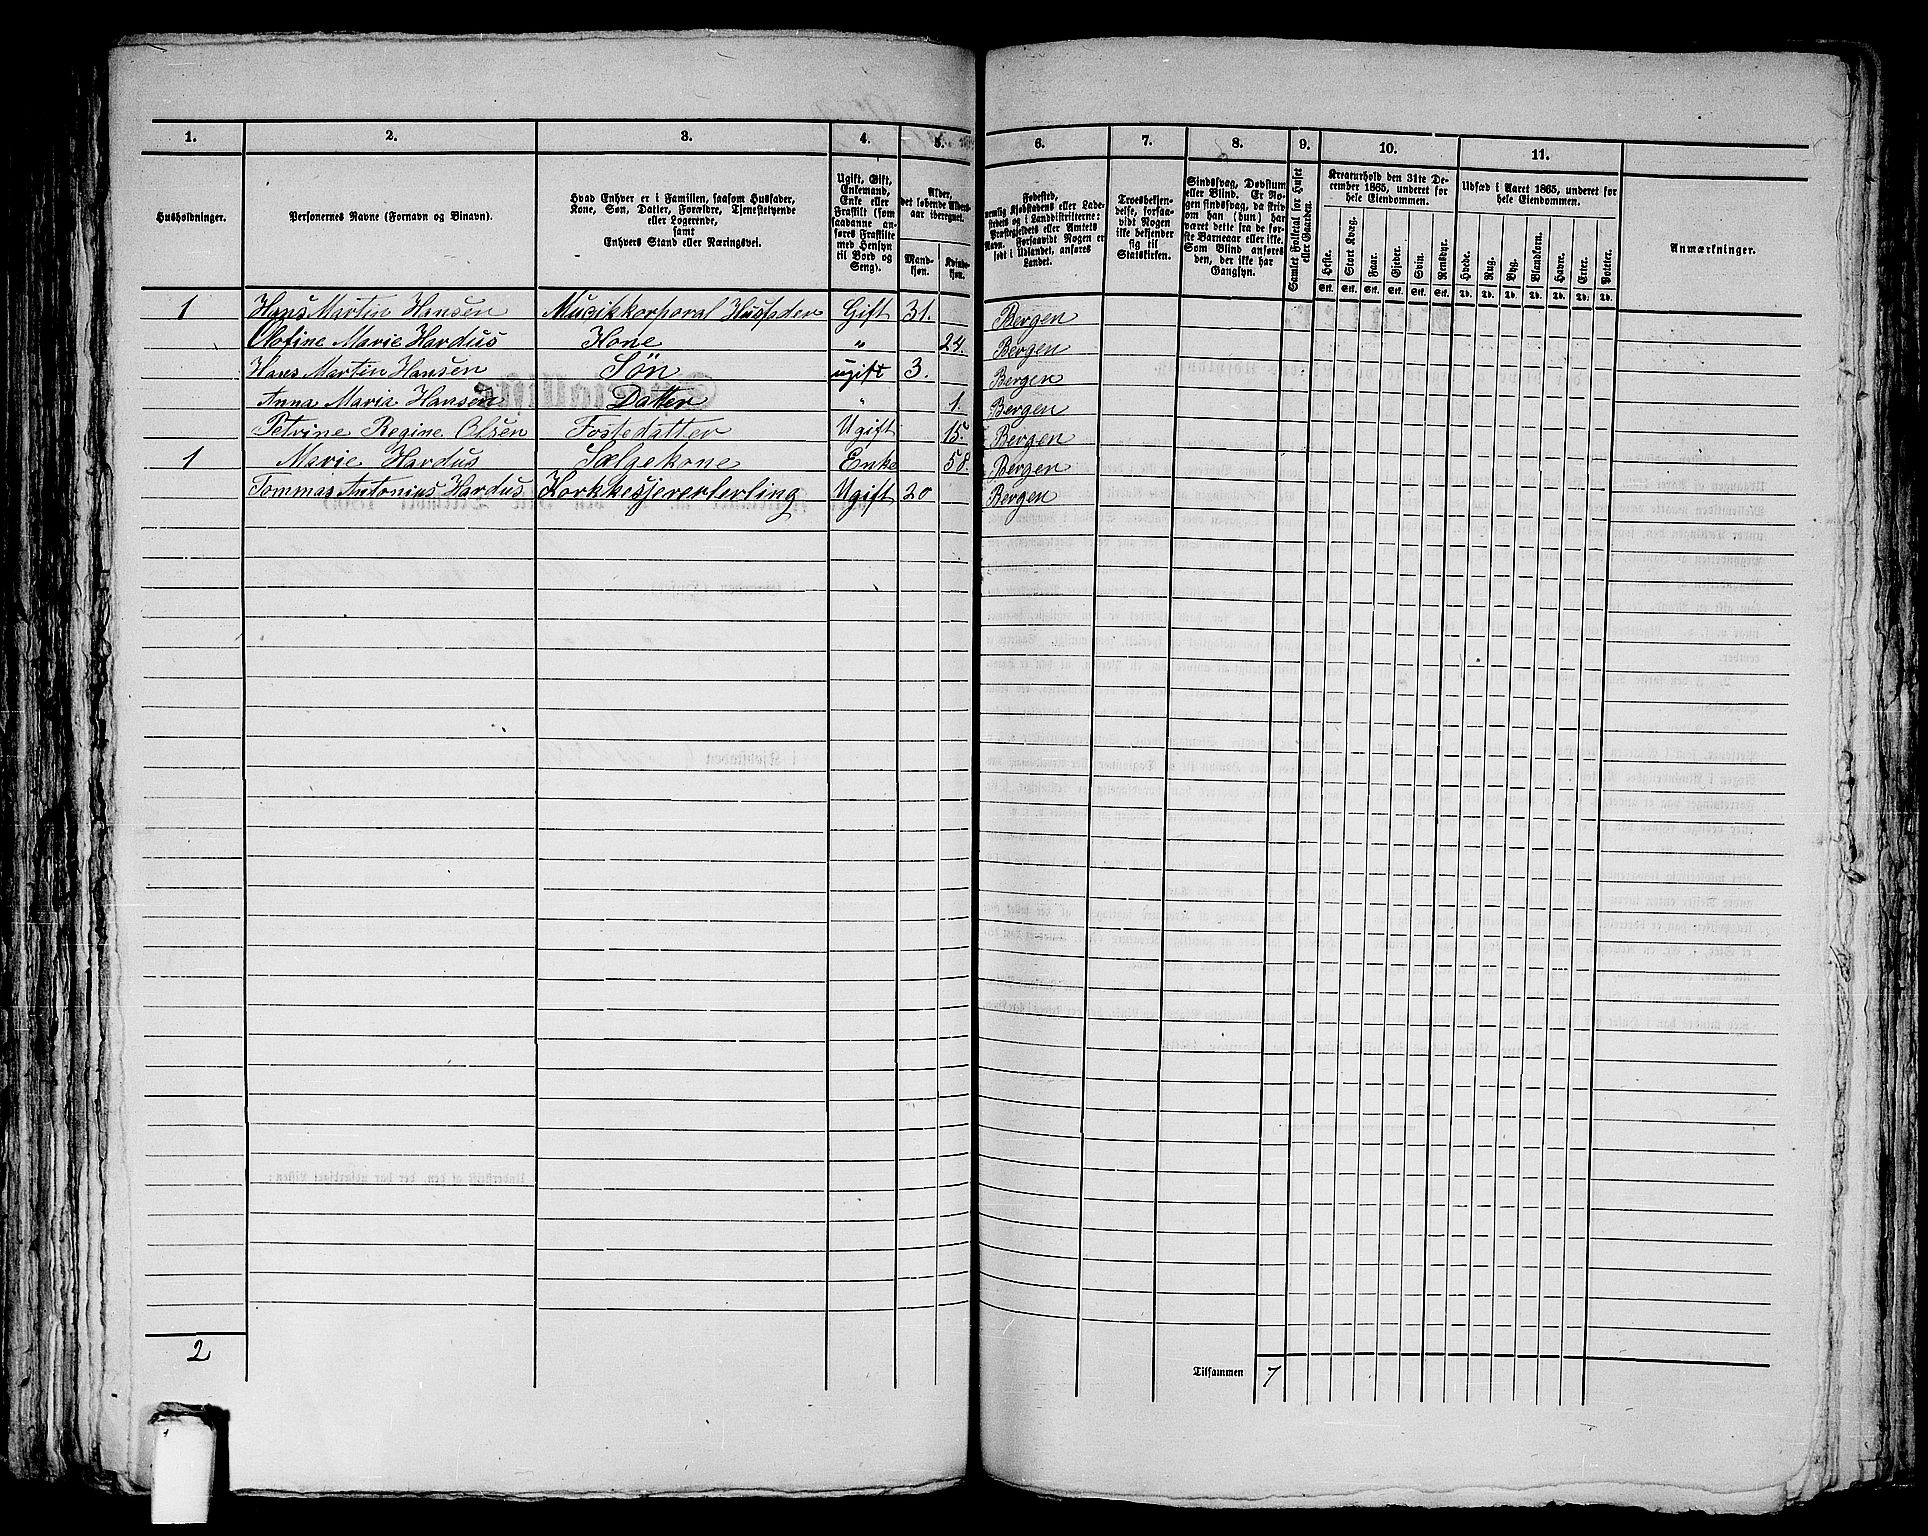 1. 2. 3. 4. 5. 6. 7. 8. 9. 10. 11.
Husholdninger.
Personernes Navne (Fornavn og Binavn).
Hvad Enhver er i Familien, saasom Husfader,
Kone, Søn, Datter, Forældre, Tjenestetyende
eller Logerende,
samt
Enhvers Stand eller Næringsvei.
Ugift, Gift,
Enkemand,
Enke eller
Fraskilt (som
saadanne an-
føres Fraskilte
med Hensyn
til Bord og
Seng).
Alder,
det løbende Alders-
aar iberegnet.
Mand-
kjøn.
Kvinde-
kjøn.
Fødested,
nemlig Kjøbstadens eller Lade-
stedets og i Landdistrikterne:
Præstegjeldets eller Amtets
Navn. Forsaavidt Nogen er
født i Udlandet, anføres
Landet.
Troesbekjen-
delse, forsaa-
vidt Nogen
ikke bekjender
sig til
Statskirken.
Sindssvag, Døvstum
eller Blind. Er No-
gen sindssvag, da skriv
om han (hun) har
været dette fra de før-
ste Barneaar eller ikke.
Som Blind anføres
den, der ikke har
Gangsyn.
Samlet Folketal for Huset
eller Gaarden.
Kreaturhold den 31te De-
cember 1865, underet for
hele Eiendommen.
Heste. Stort Kvæg. Faar. Gjeder. Svin. Rensdyr.
Stk. Stk. Stk. Stk. Stk. Stk.
Udsæd i Aaret 1865, underet for
hele Eiendommen.
Hvede. Rug. Byg. Blandkorn. Havre. Erter. Poteter.
Td. Td. Td. Td. Td. Td. Td.
Anmærkninger.
1 Hans Martin Hansen Musikkorporal Husfader Gift 31. Bergen
Olofine Marie Hardus Kone " 24. Bergen
Hans Martin Hansen Søn ugift 3. Bergen
Anna Maria Hansen Datter " 1. Bergen
Petrine Regine Olsen Fostedatter Ugift 15. Bergen
1 Marie Hardus Sælgekone Enke 58. Bergen
Tommas Antonius Hardus Korkkesjererterling Ugift 20 Bergen
2
Tilsammen 7